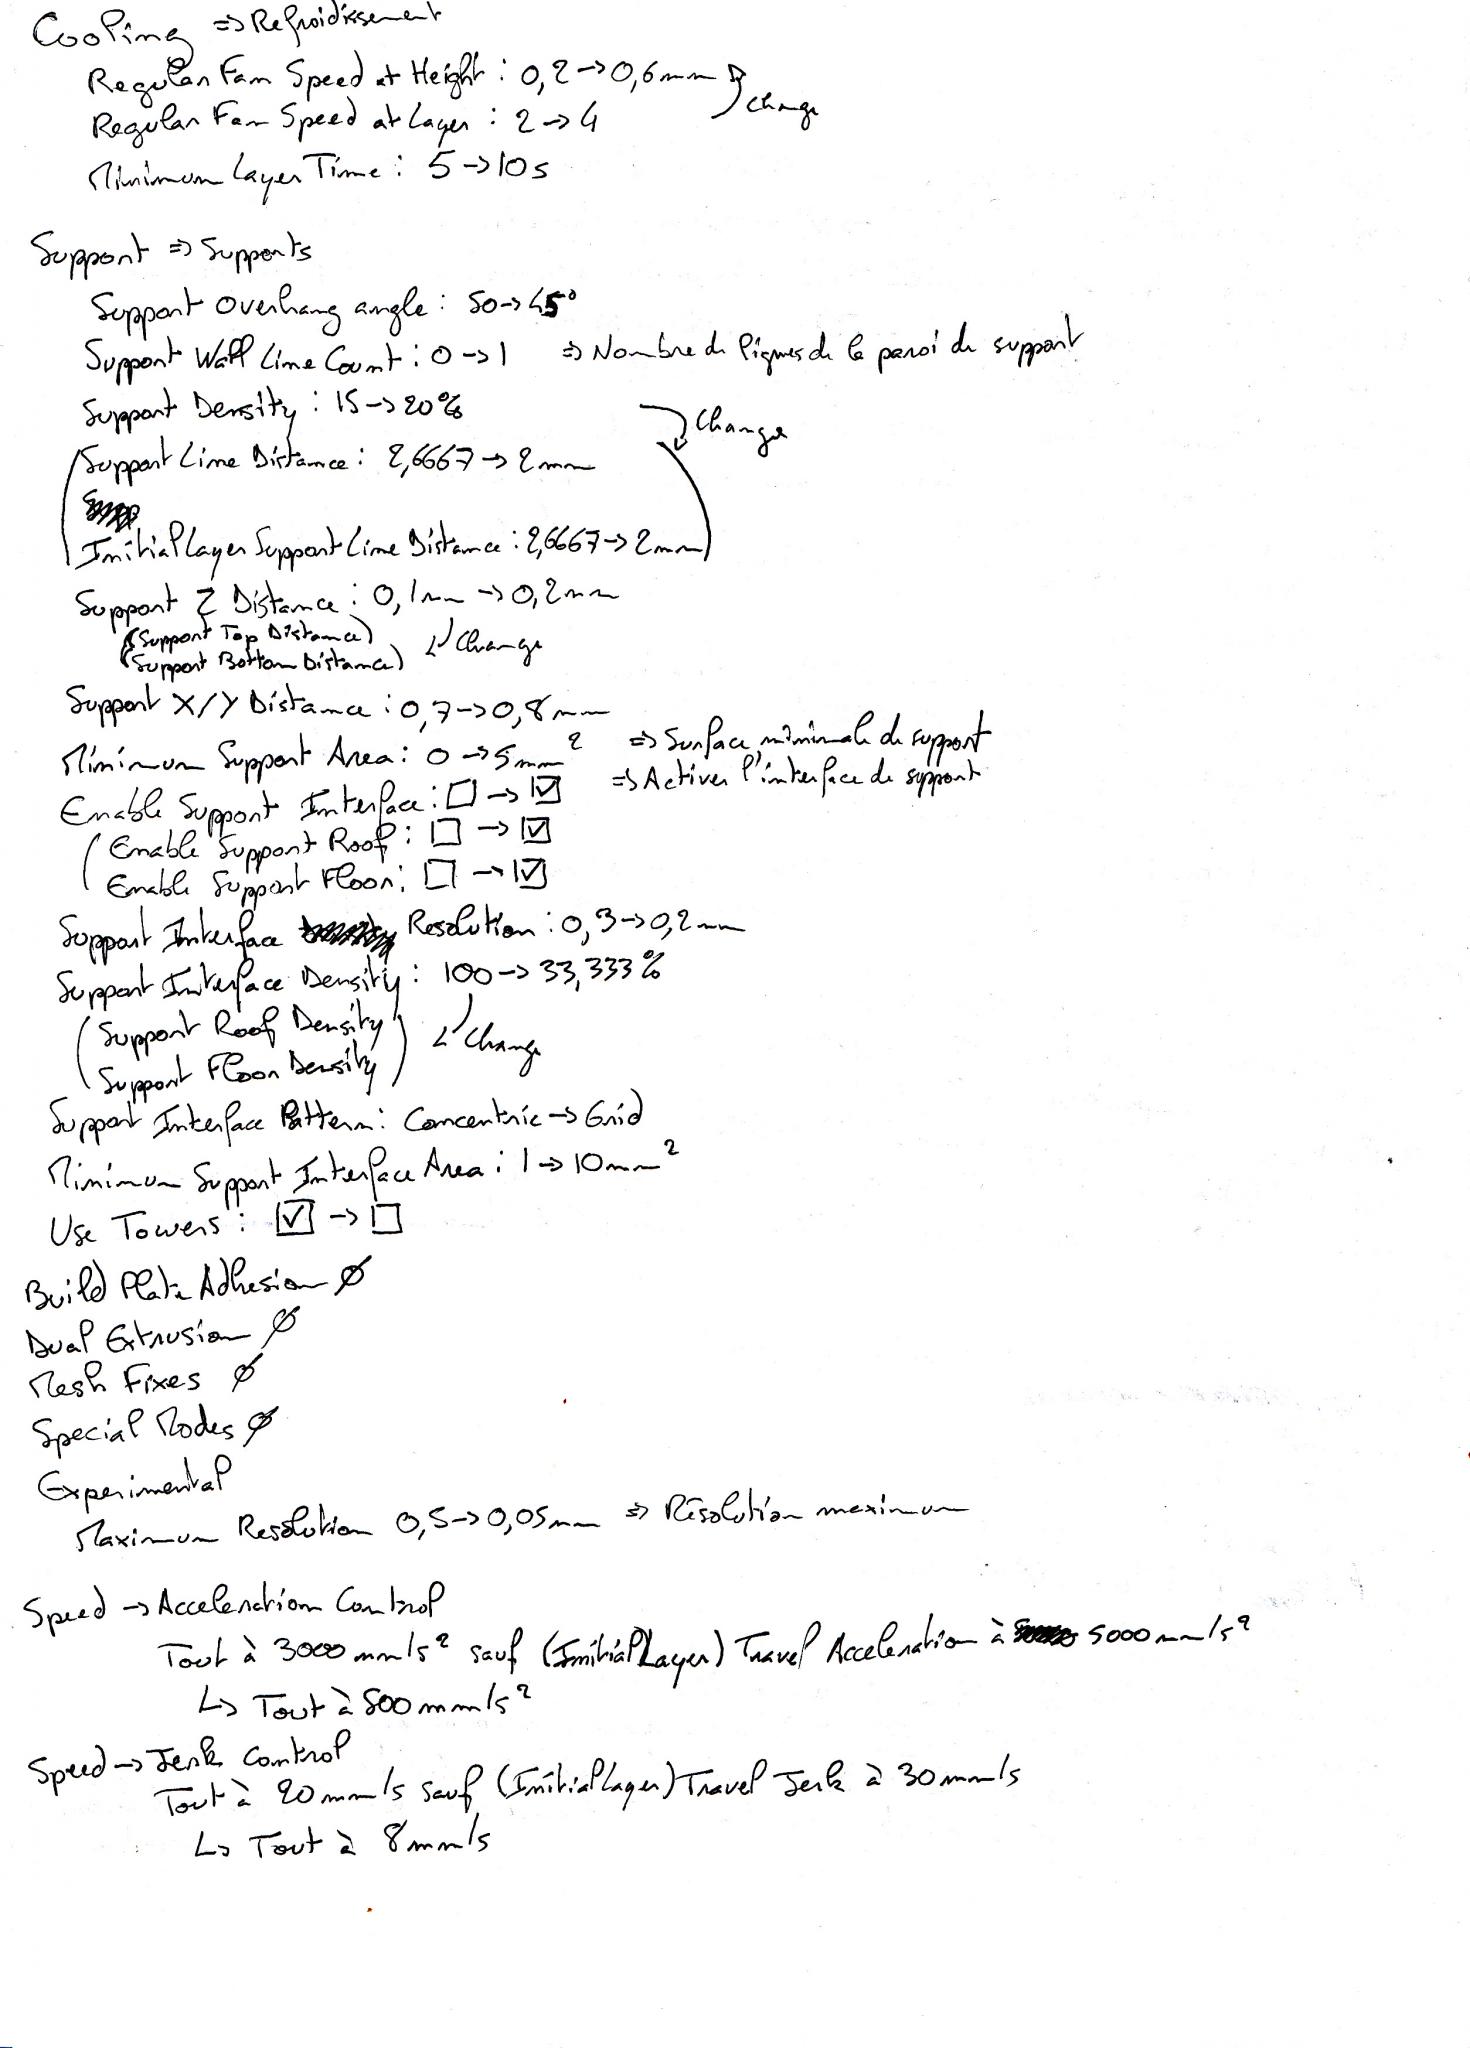 Cooling => Refroidissement
Regular Fan Speed at Height : 0,2 -> 0,6mm
Change
Regular Fan Speed at Layer : 2 -> 4
Minimum Layer Time : 5 -> 10s
Support => Supports
Support Overhang angle : 50 -> 45°
Support Wall Line Count : 0 -> 1 => Nombre de lignes de la paroi de support
Support Density : 15 -> 20%
Change
(Support Line Distance : 2,6667 -> 2mm
Initial Layer Support Line Distance : 2,6667 -> 2mm)
Support Z Distance : 0,1mm -> 0,2mm
(Support Top Distance)
(Support Bottom Distance) Change
Support X/Y Distance : 0,7 -> 0,8mm
Minimum Support Area : 0 -> 5mm² => Surface minimale de support
Enable Support Interface : ☐ -> ☑ => Activer l'interface de support
(Enable Support Roof : ☐ -> ☑
Enable Support Floor : ☐ -> ☑
Support Interface Resolution : 0,3 -> 0,2mm
Support Interface Density : 100 -> 33,333%
(Support Roof Density
Support Floor Density) Change
Support Interface Pattern : Concentric -> Grid
Minimum Support Interface Area : 1 -> 10mm²
Use Towers : ☑ -> ☐
Build Plate Adhesion Ø
Dual Extrusion Ø
Mesh Fixes Ø
Special Modes Ø
Experimental
Maximum Resolution 0,5 -> 0,05mm => Résolution maximum
Speed -> Acceleration Control
Tout à 3000 mm/s² sauf (Initial Layer) Travel Acceleration à 5000 mm/s²
↳ Tout à 500 mm/s²
Speed -> Jerk Control
Tout à 20 mm/s sauf (Initial Layer) Travel Jerk à 30 mm/s
↳ Tout à 8 mm/s